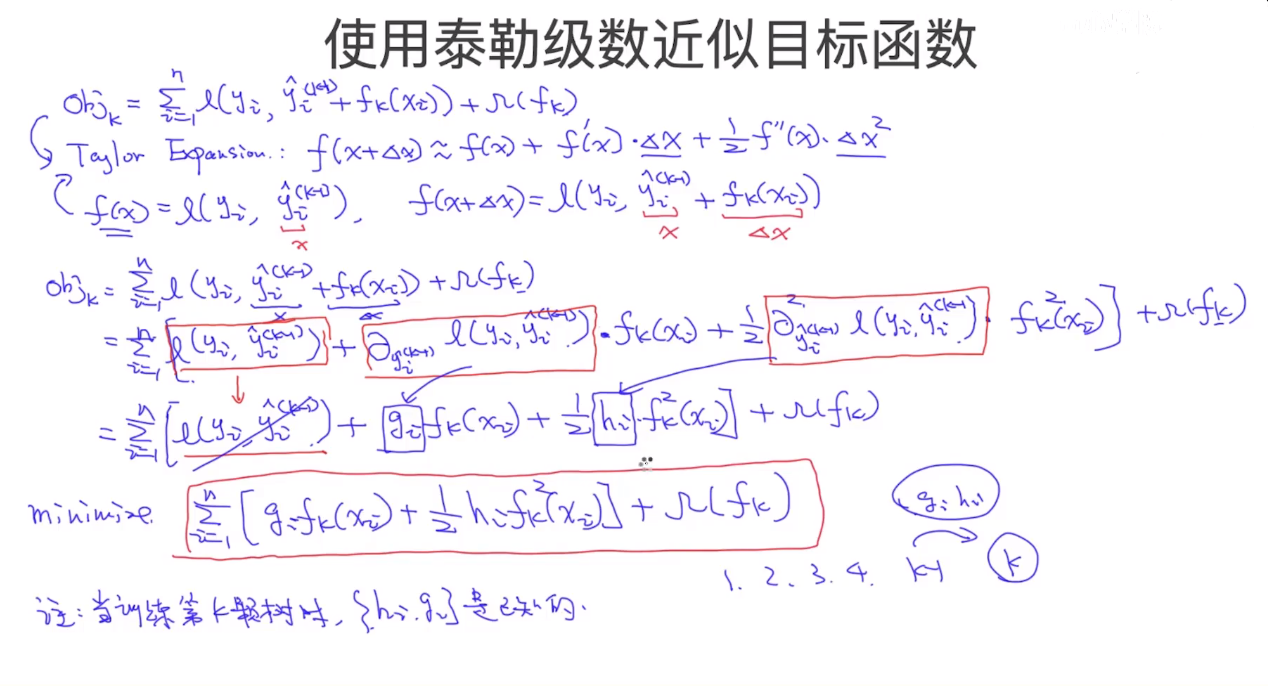 使用泰勒级数近似目标函数
Obj_k = Σ_{i=1}^{n} l(y_i, ŷ_i^{(k-1)} + f_k(x_i)) + Ω(f_k)
Taylor Expansion: f(x+Δx) ≈ f(x) + f'(x)·Δx + ½ f''(x)·Δx²
f(x) = l(y_i, ŷ_i^{(k-1)}), f(x+Δx) = l(y_i, ŷ_i^{(k-1)} + f_k(x_i))
x x Δx
Obj_k = Σ_{i=1}^{n} l(y_i, ŷ_i^{(k-1)} + f_k(x_i)) + Ω(f_k)
x Δx
= Σ_{i=1}^{n} [l(y_i, ŷ_i^{(k-1)}) + ∂_{ŷ_i^{(k-1)}} l(y_i, ŷ_i^{(k-1)})·f_k(x_i) + ½ ∂²_{ŷ_i^{(k-1)}} l(y_i, ŷ_i^{(k-1)})·f_k²(x_i)] + Ω(f_k)
= Σ_{i=1}^{n} [l(y_i, ŷ_i^{(k-1)}) + g_i f_k(x_i) + ½ h_i·f_k²(x_i)] + Ω(f_k)
minimize. Σ_{i=1}^{n} [g_i f_k(x_i) + ½ h_i f_k²(x_i)] + Ω(f_k)
g_i h_i
1. 2. 3. 4. k-1 k
注:当训练第k颗树时,{h_i, g_i}是已知的.